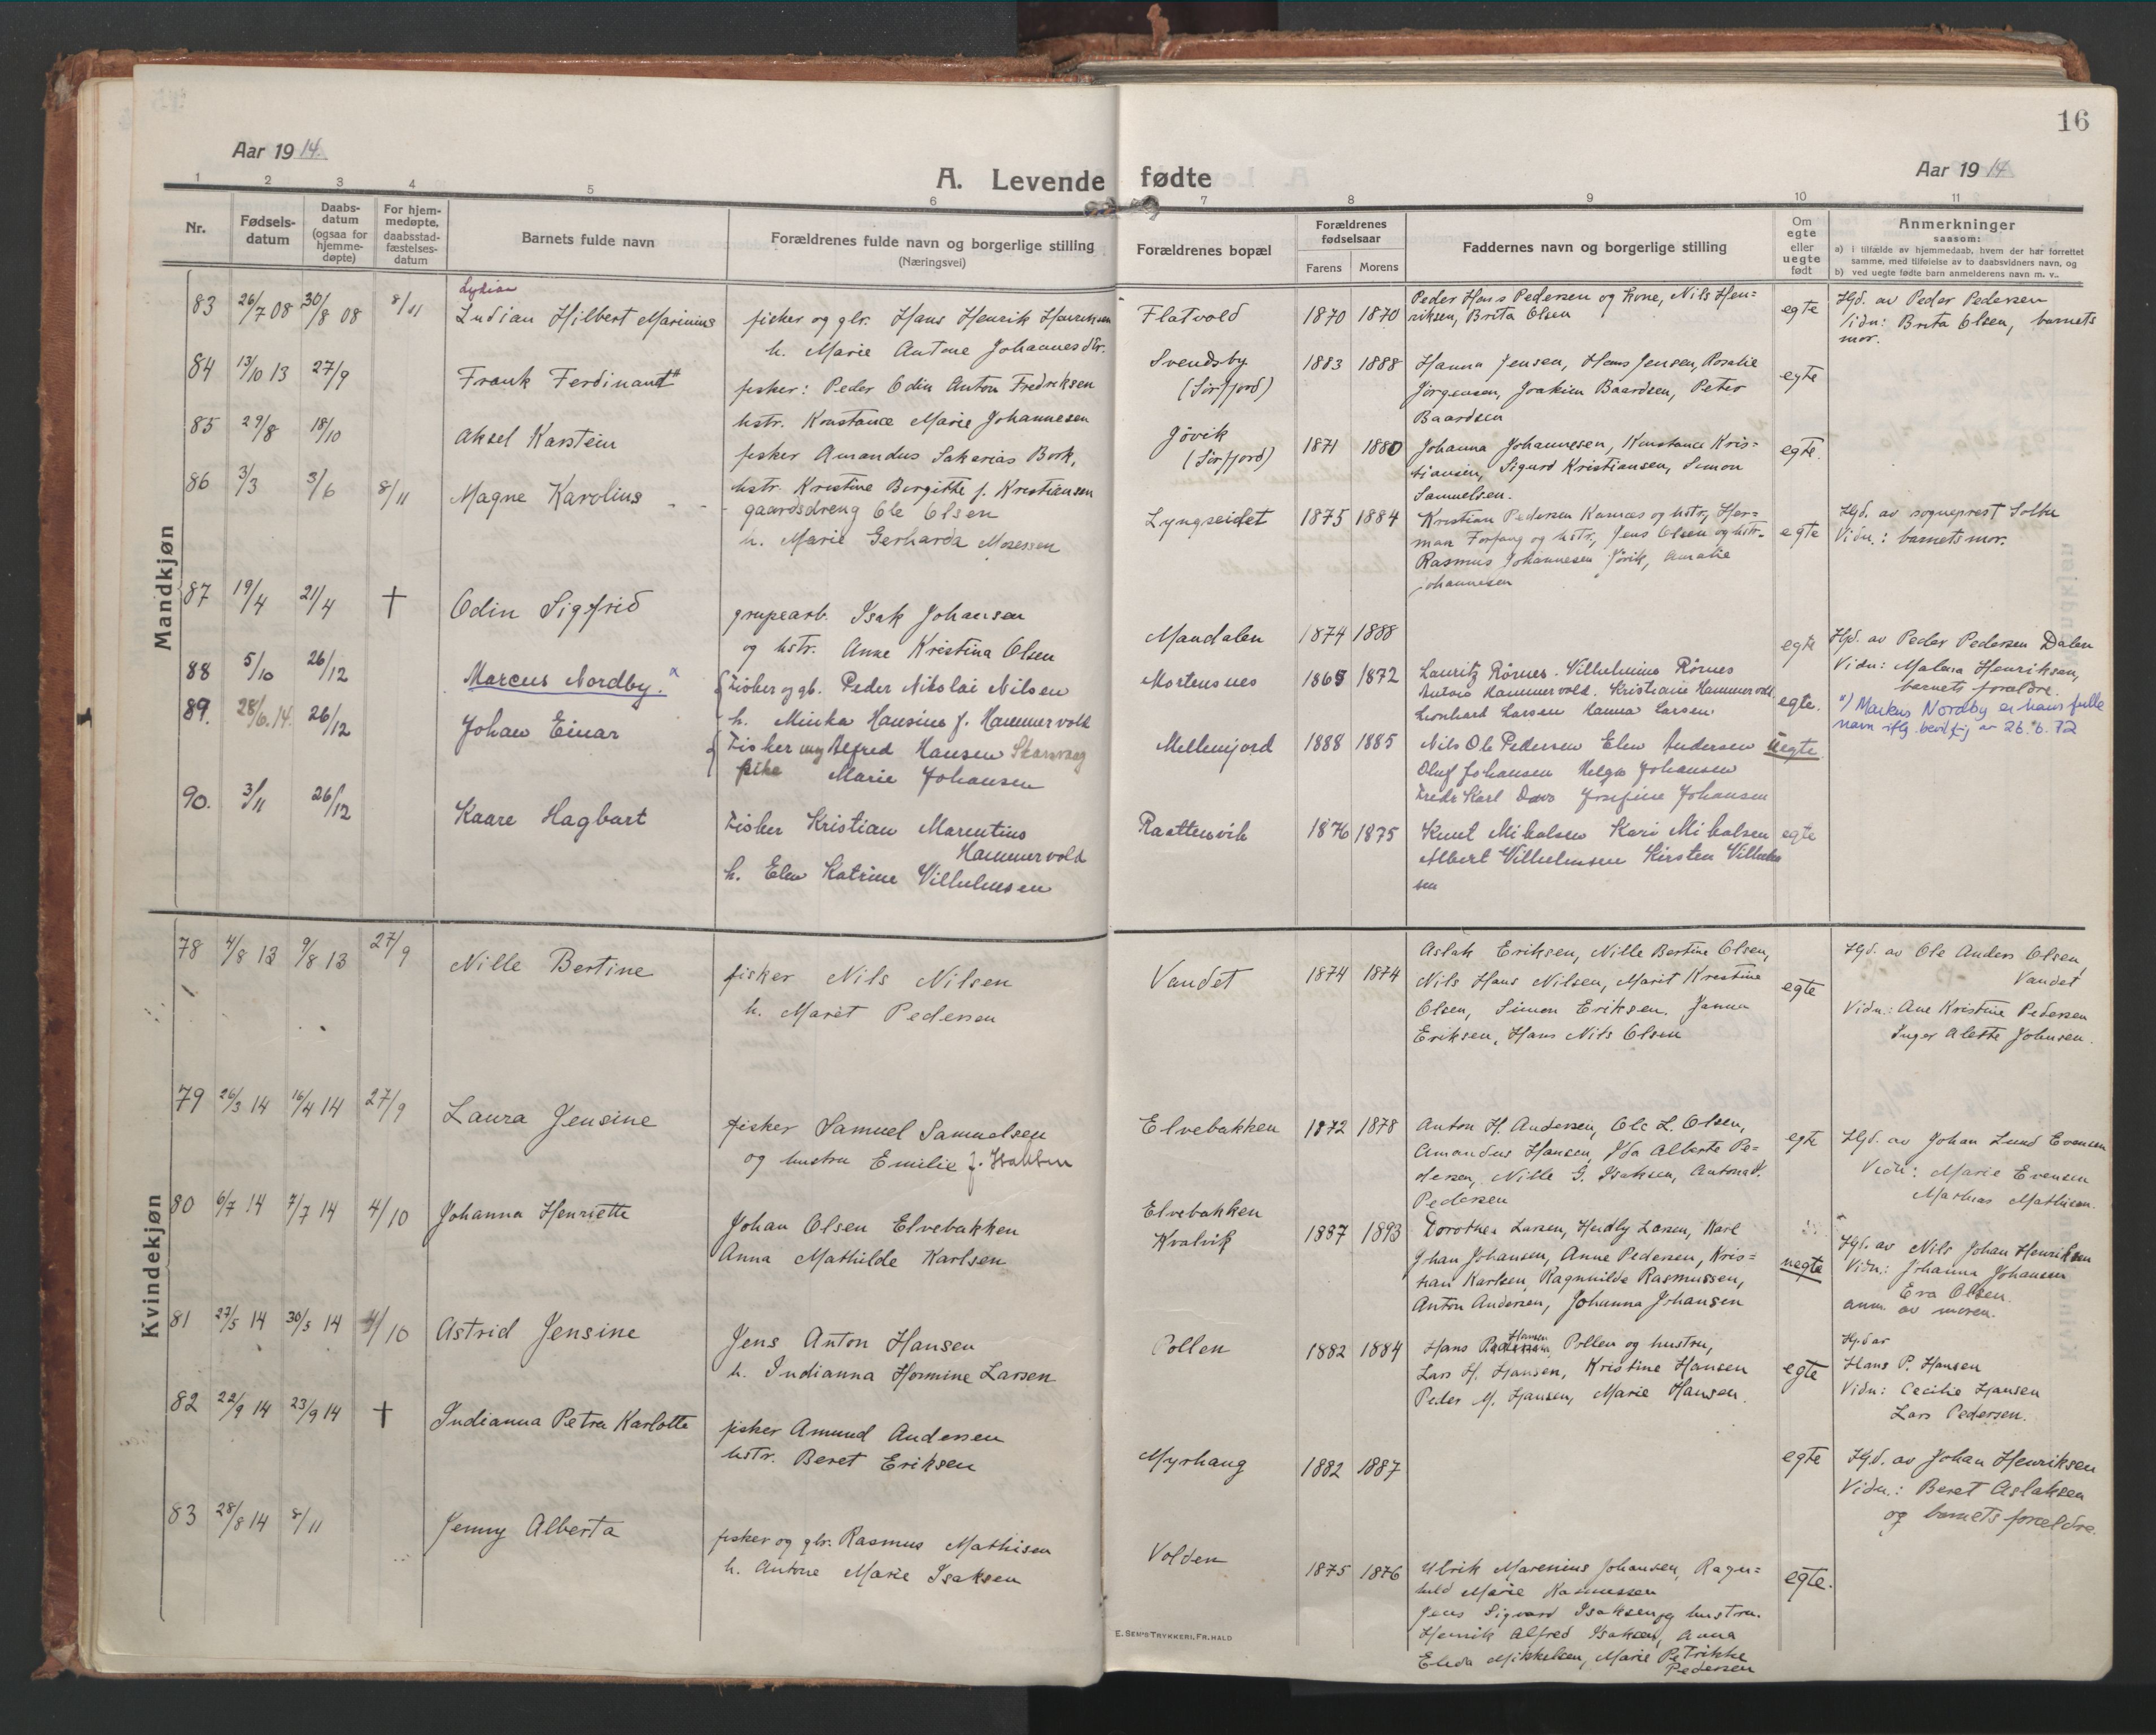 16
Aar 1914.
Aar 1914
A. Levende fødte
1 2 3 4 5 6 7 8 9 10 11
Nr.
Fødsels-
datum
Daabs-
datum
(ogsaa for
hjemme-
døpte)
For hjem-
medøpte,
daabsstad-
fæstelses-
datum
Barnets fulde navn
Forældrenes fulde navn og borgerlige stilling
(Næringsvei)
Forældrenes bopæl
Forældrenes
fødselsaar
Farens Morens
Faddernes navn og borgerlige stilling
Om
egte
eller
uegte
født
Anmerkninger
saasom:
a) i tilfælde av hjemmedaab, hvem der har forrettet
samme, med tilføielse av to daabsvidners navn, og
b) ved uegte fødte barn anmelderens navn m. v..
Mandkjøn
83 26/7 08 30/8 08 8/11
Lydian
Ludian Hilbert Marinius
fisker og gbr. Hans Henrik Henriksen
h. Marie Antone Johannesdtr.
Flatvold
1870 1870
Peder Hans Pedersen og kone, Nils Hen=
riksen, Brita Olsen
egte
Hjd. av Peder Pedersen
Vidn: Brita Olsen, barnets
mor.
84 13/10 13 27/9
Frank Ferdinant
fisker: Peder Odin Anton Fredriksen
hstr. Konstance Marie Johannesen
Svendsby
(Sørfjord)
1883 1888
Hanna Jensen, Hans Jensen, Rosalie
Jørgensen, Joakim Baardsen, Peter
Baardsen
egte
85 29/8 18/10
Aksel Karstein
fisker Amandus Sakarias Bork,
hstr. Kristine Birgitte f. Kristiansen
Jøvik
(Sørfjord)
1871 1880
Johanna Johannesen, Konstance Kris=
tiansen, Sigurd Kristiansen, Simon
Samuelsen.
egte.
86 3/3 3/6 8/11
Magne Karolius
gaardsdreng Ole Olsen
h. Marie Gerharda Mosessen
Lyngseidet
1875 1884
Kristian Pedersen Kasnæs og hstr, Her-
man Forfang og hstr, Jens Olsen og hstr.
Rasmus Johannesen Jövik, Amalie
Johannesen
egte
Hjd. av sogneprest Solbu
Vidn.: barnets mor.
87 19/4 21/4 †
Odin Sigfrid
grupearb. Isak Johansen
og hstr. Anne Kristina Olsen
Mandalen
1874 1888
egte
Hjd. av Peder Pedersen Dalen
Vidn: Malena Henriksen,
barnets forældre.
88 5/10 26/12
Marcus Nordby. x
Fisker og gb. Peder Nikolai Nilsen
h. Minka Hansine f. Hammervold
Mortensnes
1865 1872
Lauritz Rörnes. Vilhelmine Rörnes
Antois Hammervold. Kristiane Hammervold
Leonhard Larsen Hanna Larsen.
egte.
x) Markus Nordby er hans fulle
navn iflg. bevillg. av 26.6.72
89. 28/6. 14. 26/12
Johan Einar
Fisker ung Alfred Hansen Skarvaag
pike Marie Johansen
Mellemjord
1888 1885
Nils Ole Pedersen Elen Andersen
Oluf Johansen Helga Johansen
Fredr Karl Davs Josefine Johansen
uegte
90. 3/11 26/12
Kaare Hagbart
Fisker Kristian Marentius
Hammervold
h. Elen Katrine Vilhelmsen
Raattenvik
1876 1875
Knut Mikalsen Kari Mikalsen
Albert Vilhelmsen Kirsten Vilhelm
sen
egte
Kvindekjøn
78 4/8 13 9/8 13 27/9
Nille Bertine
fisker Nils Nilsen
h. Maret Pedersen
Vandet
1874 1874
Aslak Eriksen, Nille Bertine Olsen,
Nils Hans Nilsen, Marit Kristine
Olsen, Simon Eriksen. Janna
Eriksen, Hans Nils Olsen
egte
Hjd. av Ole Anders Olsen,
Vandet
Vidn.: Ane Kristine Pedersen
Inger Alette Johnsen.
79 26/3 14 16/4 14 27/9
Laura Jensine
fisker Samuel Samuelsen
og hustru Emilie f. Isaksen
Elvebakken
1872 1878
Anton H. Andersen, Ole L. Olsen,
Amandus Hansen, Ida Alberte Pe=
dersen, Nille G. Isaksen, Anton
Pedersen
egte
Hjd. av Johan Lund Evensen
Vidn: Marie Evensen
Mathias Mathisen.
80 6/7 14 7/7 14 4/10
Johanna Henriette
Johan Olsen Elvebakken
Anna Mathilde Karlsen
Elvebakken
Kvalvik
1887 1893
Dorothea Larsen, Hedly Larsen, Karl
Johan Johansen, Anne Pedersen, Kris=
tian Karlsen, Ragnhilde Rasmussen,
Anton Andersen, Johanna Johansen
uegte
Hjd. av Nils Johan Henriksen
Vidn.: Johanna Johansen
Eva Olsen.
anm. av moren.
81 27/5 14 30/5 14 4/10
Astrid Jensine
Jens Anton Hansen
h. Indianna Hermine Larsen
Pollen
1882 1884
Hansen
Hans Pedersen Pollen og hustru,
Lars H. Hansen, Kristine Hansen
Peder M. Hansen, Marie Hansen.
egte
Hjd av
Hans P. Hansen
Vidn: Cecilie Hansen
Lars Pedersen.
82 22/9 14 23/9 14 †
Indianna Petra Karlotte
fisker Amund Andersen
hstr. Beret Eriksen
Myrhaug
1882 1887
egte
Hjd. av Johan Henriksen
Vidn.: Beret Aslaksen
og barnets forældre.
83 28/8 14 8/11
Jenny Alberta
fisker og gbr. Rasmus Mathisen
h. Antone Marie Isaksen
Volden
1875 1876
Ulrik Marenius Johansen, Ragn=
hild Marie Rasmussen
Jens Sigvard Isaksen og hustru.
Henrik Alfred Isaksen, Anna
Elida Mikkelsen, Marie Petrikke
Pedersen
egte.
E. SEM'S TRYKKERI, FR.HALD